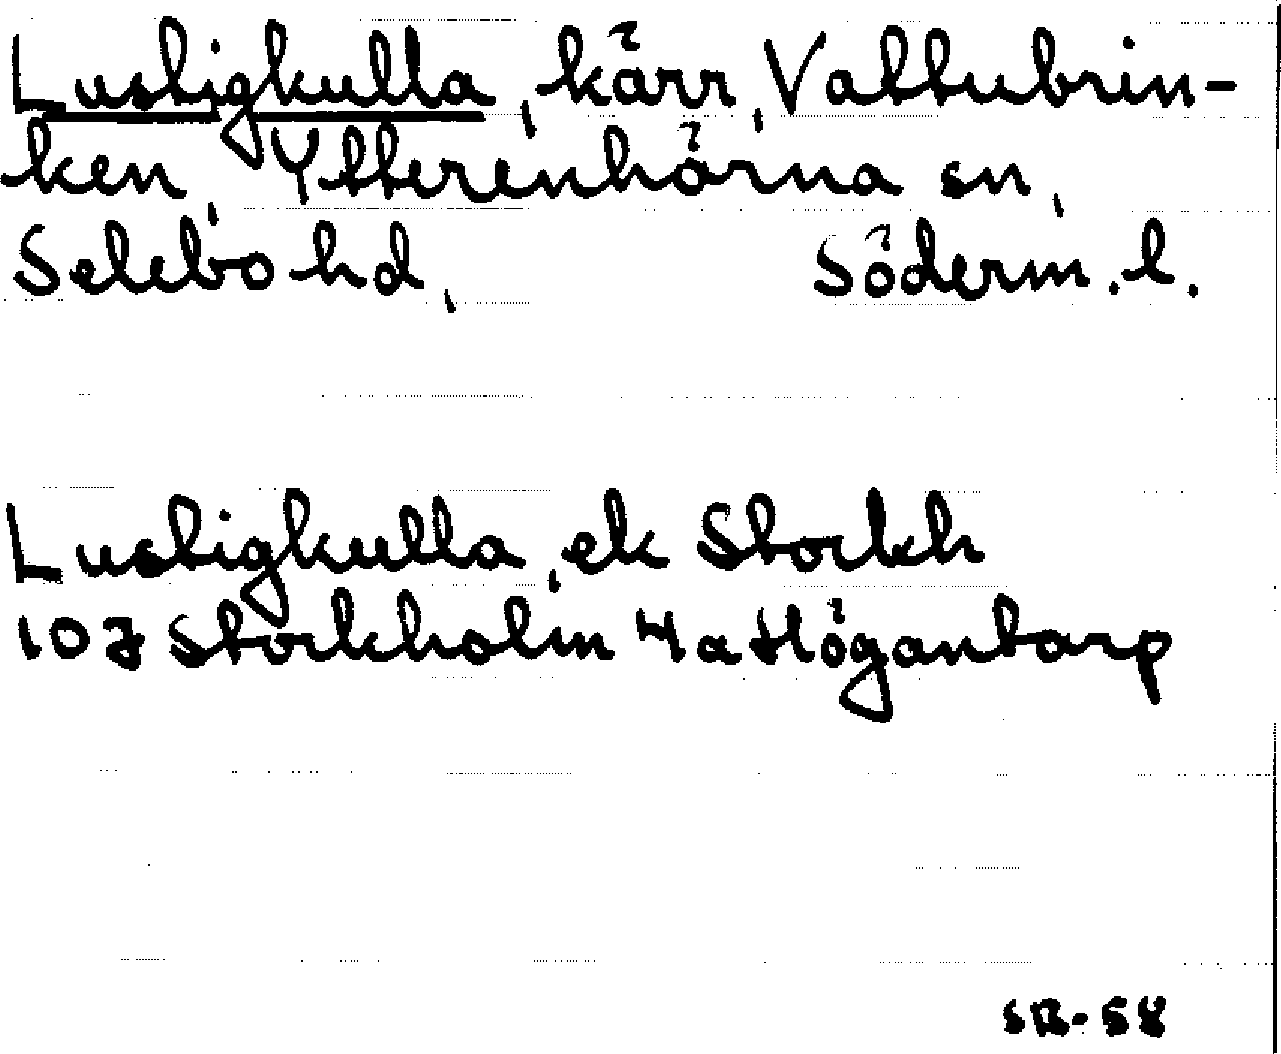 Lustigkulla, kärr, Vattubrin-
ken, Ytterenhörna sn,
Selebo hd, Söderm. l.
Lustigkulla, ek Stockh
107 Stockholm 4a Högantorp
SR-58